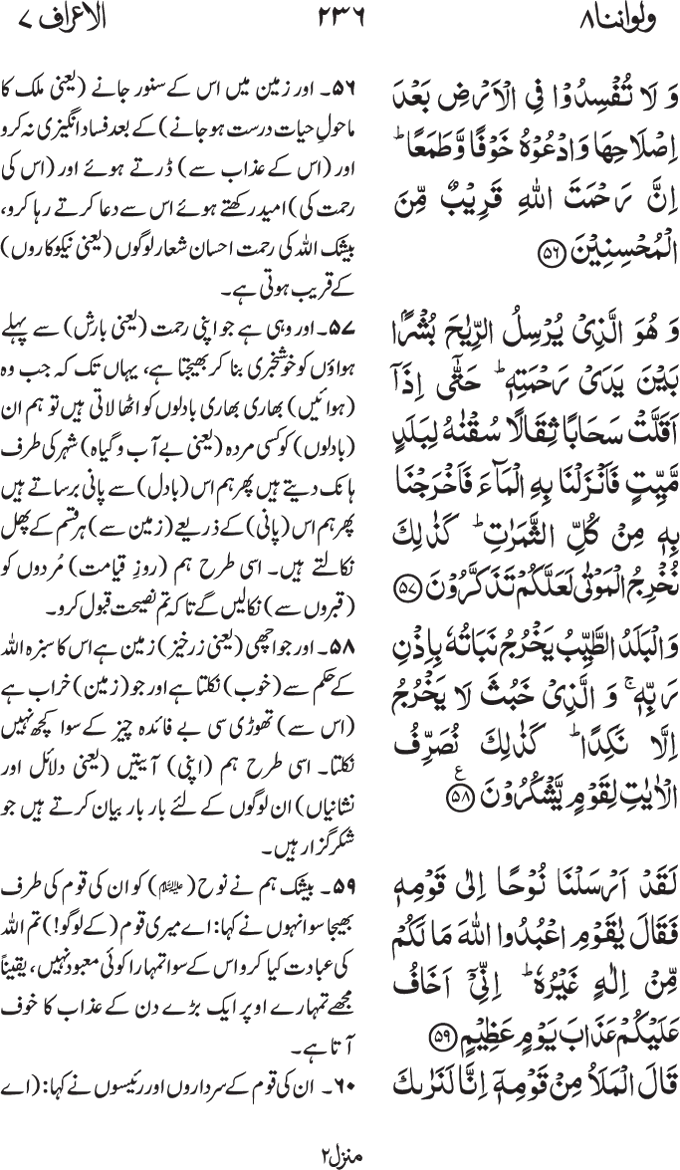 ولواننا ٨
٢٣٦
الاعراف ٧
وَ لَا تُفْسِدُوْا فِی الْاَرْضِ بَعْدَ
اِصْلَاحِهَا وَ ادْعُوْهُ خَوْفًا وَّ طَمَعًا ؕ
اِنَّ رَحْمَتَ اللّٰهِ قَرِیْبٌ مِّنَ
الْمُحْسِنِیْنَ ﴿۵۶﴾
وَ هُوَ الَّذِیْ یُرْسِلُ الرِّیٰحَ بُشْرًۢا
بَیْنَ یَدَیْ رَحْمَتِهٖ ؕ حَتّٰۤی اِذَاۤ
اَقَلَّتْ سَحَابًا ثِقَالًا سُقْنٰهُ لِبَلَدٍ
مَّیِّتٍ فَاَنْزَلْنَا بِهِ الْمَآءَ فَاَخْرَجْنَا
بِهٖ مِنْ كُلِّ الثَّمَرٰتِ ؕ كَذٰلِكَ
نُخْرِجُ الْمَوْتٰی لَعَلَّكُمْ تَذَكَّرُوْنَ ﴿۵۷﴾
وَ الْبَلَدُ الطَّیِّبُ یَخْرُجُ نَبَاتُهٗ بِاِذْنِ
رَبِّهٖ ۚ وَ الَّذِیْ خَبُثَ لَا یَخْرُجُ
اِلَّا نَكِدًا ؕ كَذٰلِكَ نُصَرِّفُ
الْاٰیٰتِ لِقَوْمٍ یَّشْكُرُوْنَ ﴿۵۸﴾ ع
لَقَدْ اَرْسَلْنَا نُوْحًا اِلٰی قَوْمِهٖ
فَقَالَ یٰقَوْمِ اعْبُدُوا اللّٰهَ مَا لَكُمْ
مِّنْ اِلٰهٍ غَیْرُهٗ ؕ اِنِّیْۤ اَخَافُ
عَلَیْكُمْ عَذَابَ یَوْمٍ عَظِیْمٍ ﴿۵۹﴾
قَالَ الْمَلَاُ مِنْ قَوْمِهٖۤ اِنَّا لَنَرٰىكَ
۵۶۔ اور زمین میں اس کے سنور جانے (یعنی ملک کا
ماحولِ حیات درست ہو جانے) کے بعد فساد انگیزی نہ کرو
اور (اس کے عذاب سے) ڈرتے ہوئے اور (اس کی
رحمت کی) امید رکھتے ہوئے اس سے دعا کرتے رہا کرو،
بیشک اللہ کی رحمت احسان شعار لوگوں (یعنی نیکوکاروں)
کے قریب ہوتی ہے۔
۵۷۔ اور وہی ہے جو اپنی رحمت (یعنی بارش) سے پہلے
ہواؤں کو خوشخبری بنا کر بھیجتا ہے، یہاں تک کہ جب وہ
(ہوائیں) بھاری بھاری بادلوں کو اٹھا لاتی ہیں تو ہم ان
(بادلوں) کو کسی مردہ (یعنی بے آب و گیاہ) شہر کی طرف
ہانک دیتے ہیں پھر ہم اس (بادل) سے پانی برساتے ہیں
پھر ہم اس (پانی) کے ذریعے (زمین سے) ہر قسم کے پھل
نکالتے ہیں۔ اسی طرح ہم (روزِ قیامت) مُردوں کو
(قبروں سے) نکالیں گے تاکہ تم نصیحت قبول کرو۔
۵۸۔ اور جو اچھی (یعنی زرخیز) زمین ہے اس کا سبزہ اللہ
کے حکم سے (خوب) نکلتا ہے اور جو (زمین) خراب ہے
(اس سے) تھوڑی سی بے فائدہ چیز کے سوا کچھ نہیں
نکلتا۔ اسی طرح ہم (اپنی) آیتیں (یعنی دلائل اور
نشانیاں) ان لوگوں کے لئے بار بار بیان کرتے ہیں جو
شکرگزار ہیں۔
۵۹۔ بیشک ہم نے نوح (علیہ السلام) کو ان کی قوم کی طرف
بھیجا سو انہوں نے کہا: اے میری قوم (کے لوگو!) تم اللہ
کی عبادت کیا کرو اس کے سوا تمہارا کوئی معبود نہیں، یقیناً
مجھے تمہارے اوپر ایک بڑے دن کے عذاب کا خوف
آتا ہے۔
۶۰۔ ان کی قوم کے سرداروں اور رئیسوں نے کہا: (اے
منزل ٢